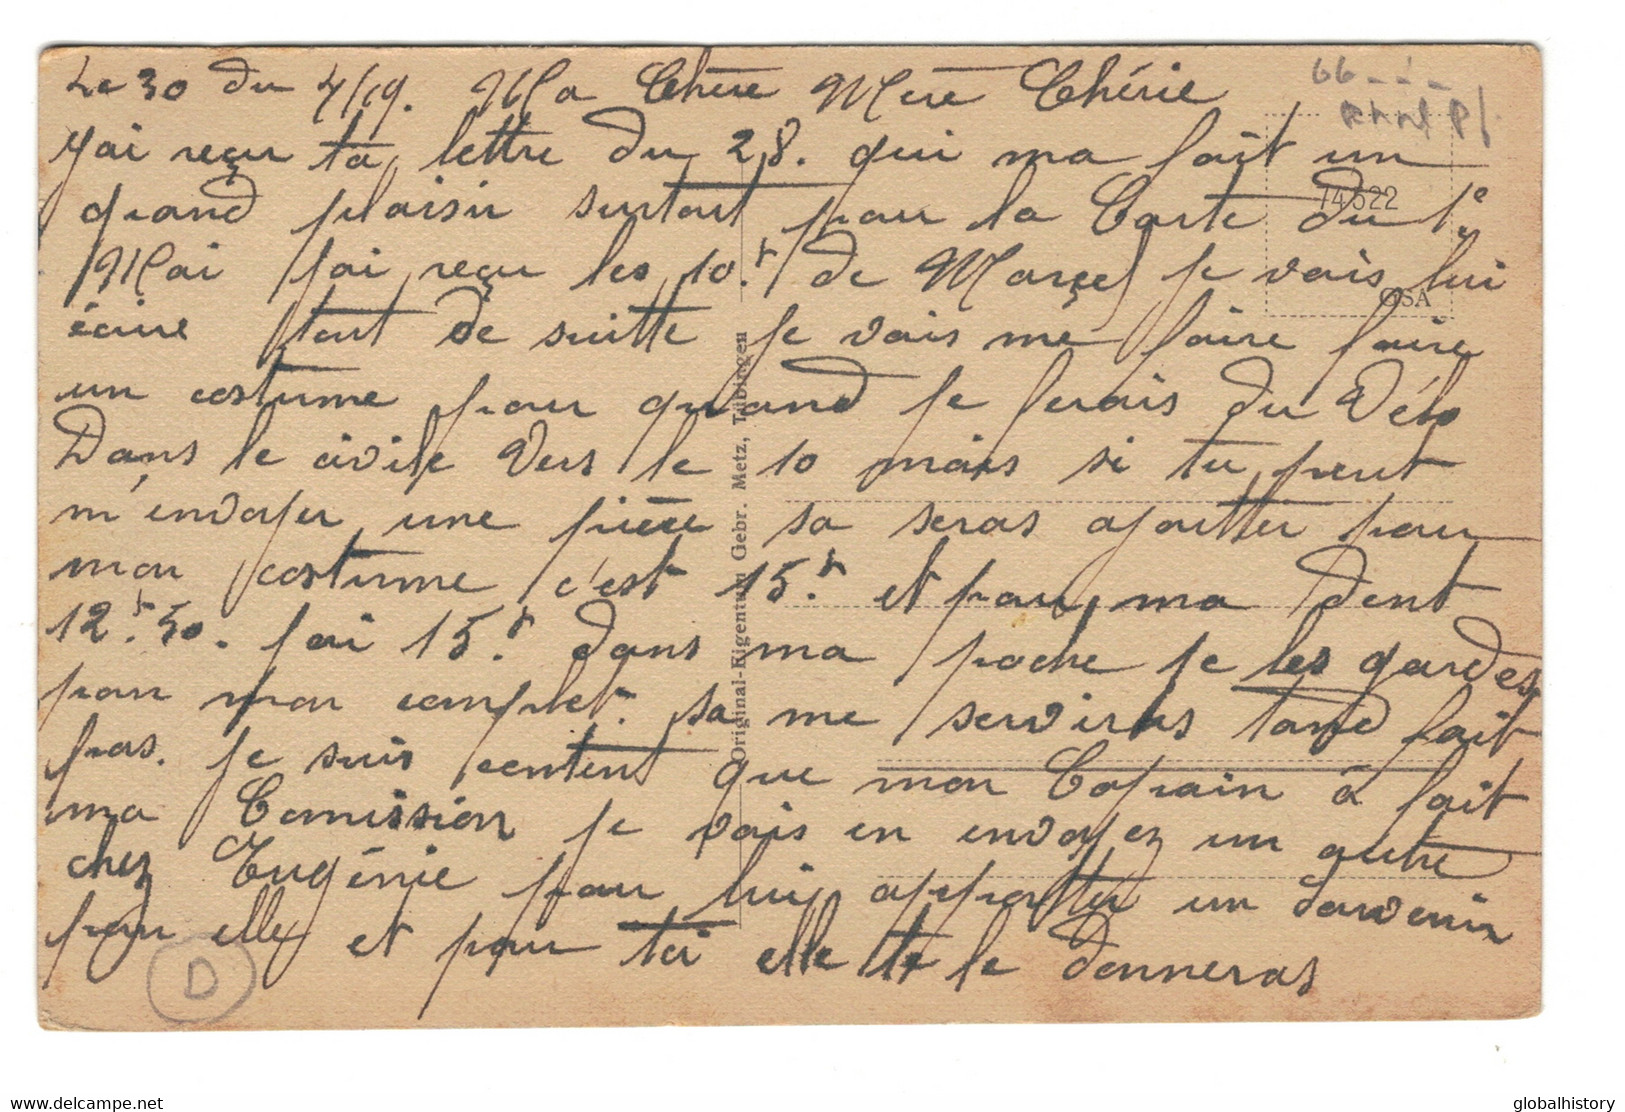 Le 30 du 4/19. Ma Chère Mère Chérie
J'ai reçu ta lettre du 28. qui ma fait un
grand plaisir surtout pour la Carte du 1e
Mai j'ai reçu les 10.f de Marcel je vais lui
écrire tout de suitte je vais me faire faire
un costume pour quand je ferais du Vélo
Dans le civile Vers le 10 mais si tu peut
m'envoyer une pièce sa seras ajoutter pour
mon costume c'est 15.f et pour ma dent
12.f 50. j'ai 15.f dans ma poche je les gardes
pour mon complet. sa me serviras tand fait
pas. je suis content que mon Copain à fait
ma Comission je vais en envoyez un autre
chez Eugénie pour lui apportter un souvenir
pour elle et pour toi elle te le donneras
66
14 522
GSA
Original-Eigentum Gebr. Metz, Tübingen
D
www.delcampe.net
globalhistory